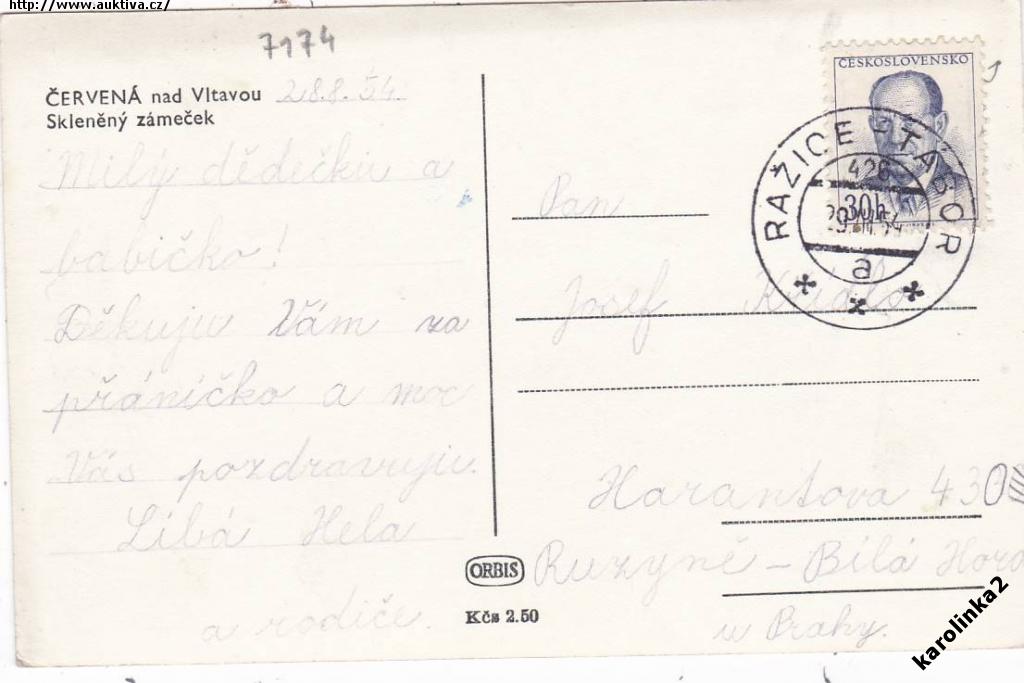 http://www.auktiva.cz/
7174
ČERVENÁ nad Vltavou 28.8.54
Skleněný zámeček
Milý dědečku a
babičko!
Děkuju Vám za
přáníčko a moc
Vás pozdravuju.
Líbá Hela
a rodiče.
ORBIS
Kčs 2.50
ČESKOSLOVENSKO
30h
RAŽICE - TÁBOR
426
a
Pan
Josef
Harantova 430
Ruzyně - Bílá Hora
u Prahy.
karolinka2